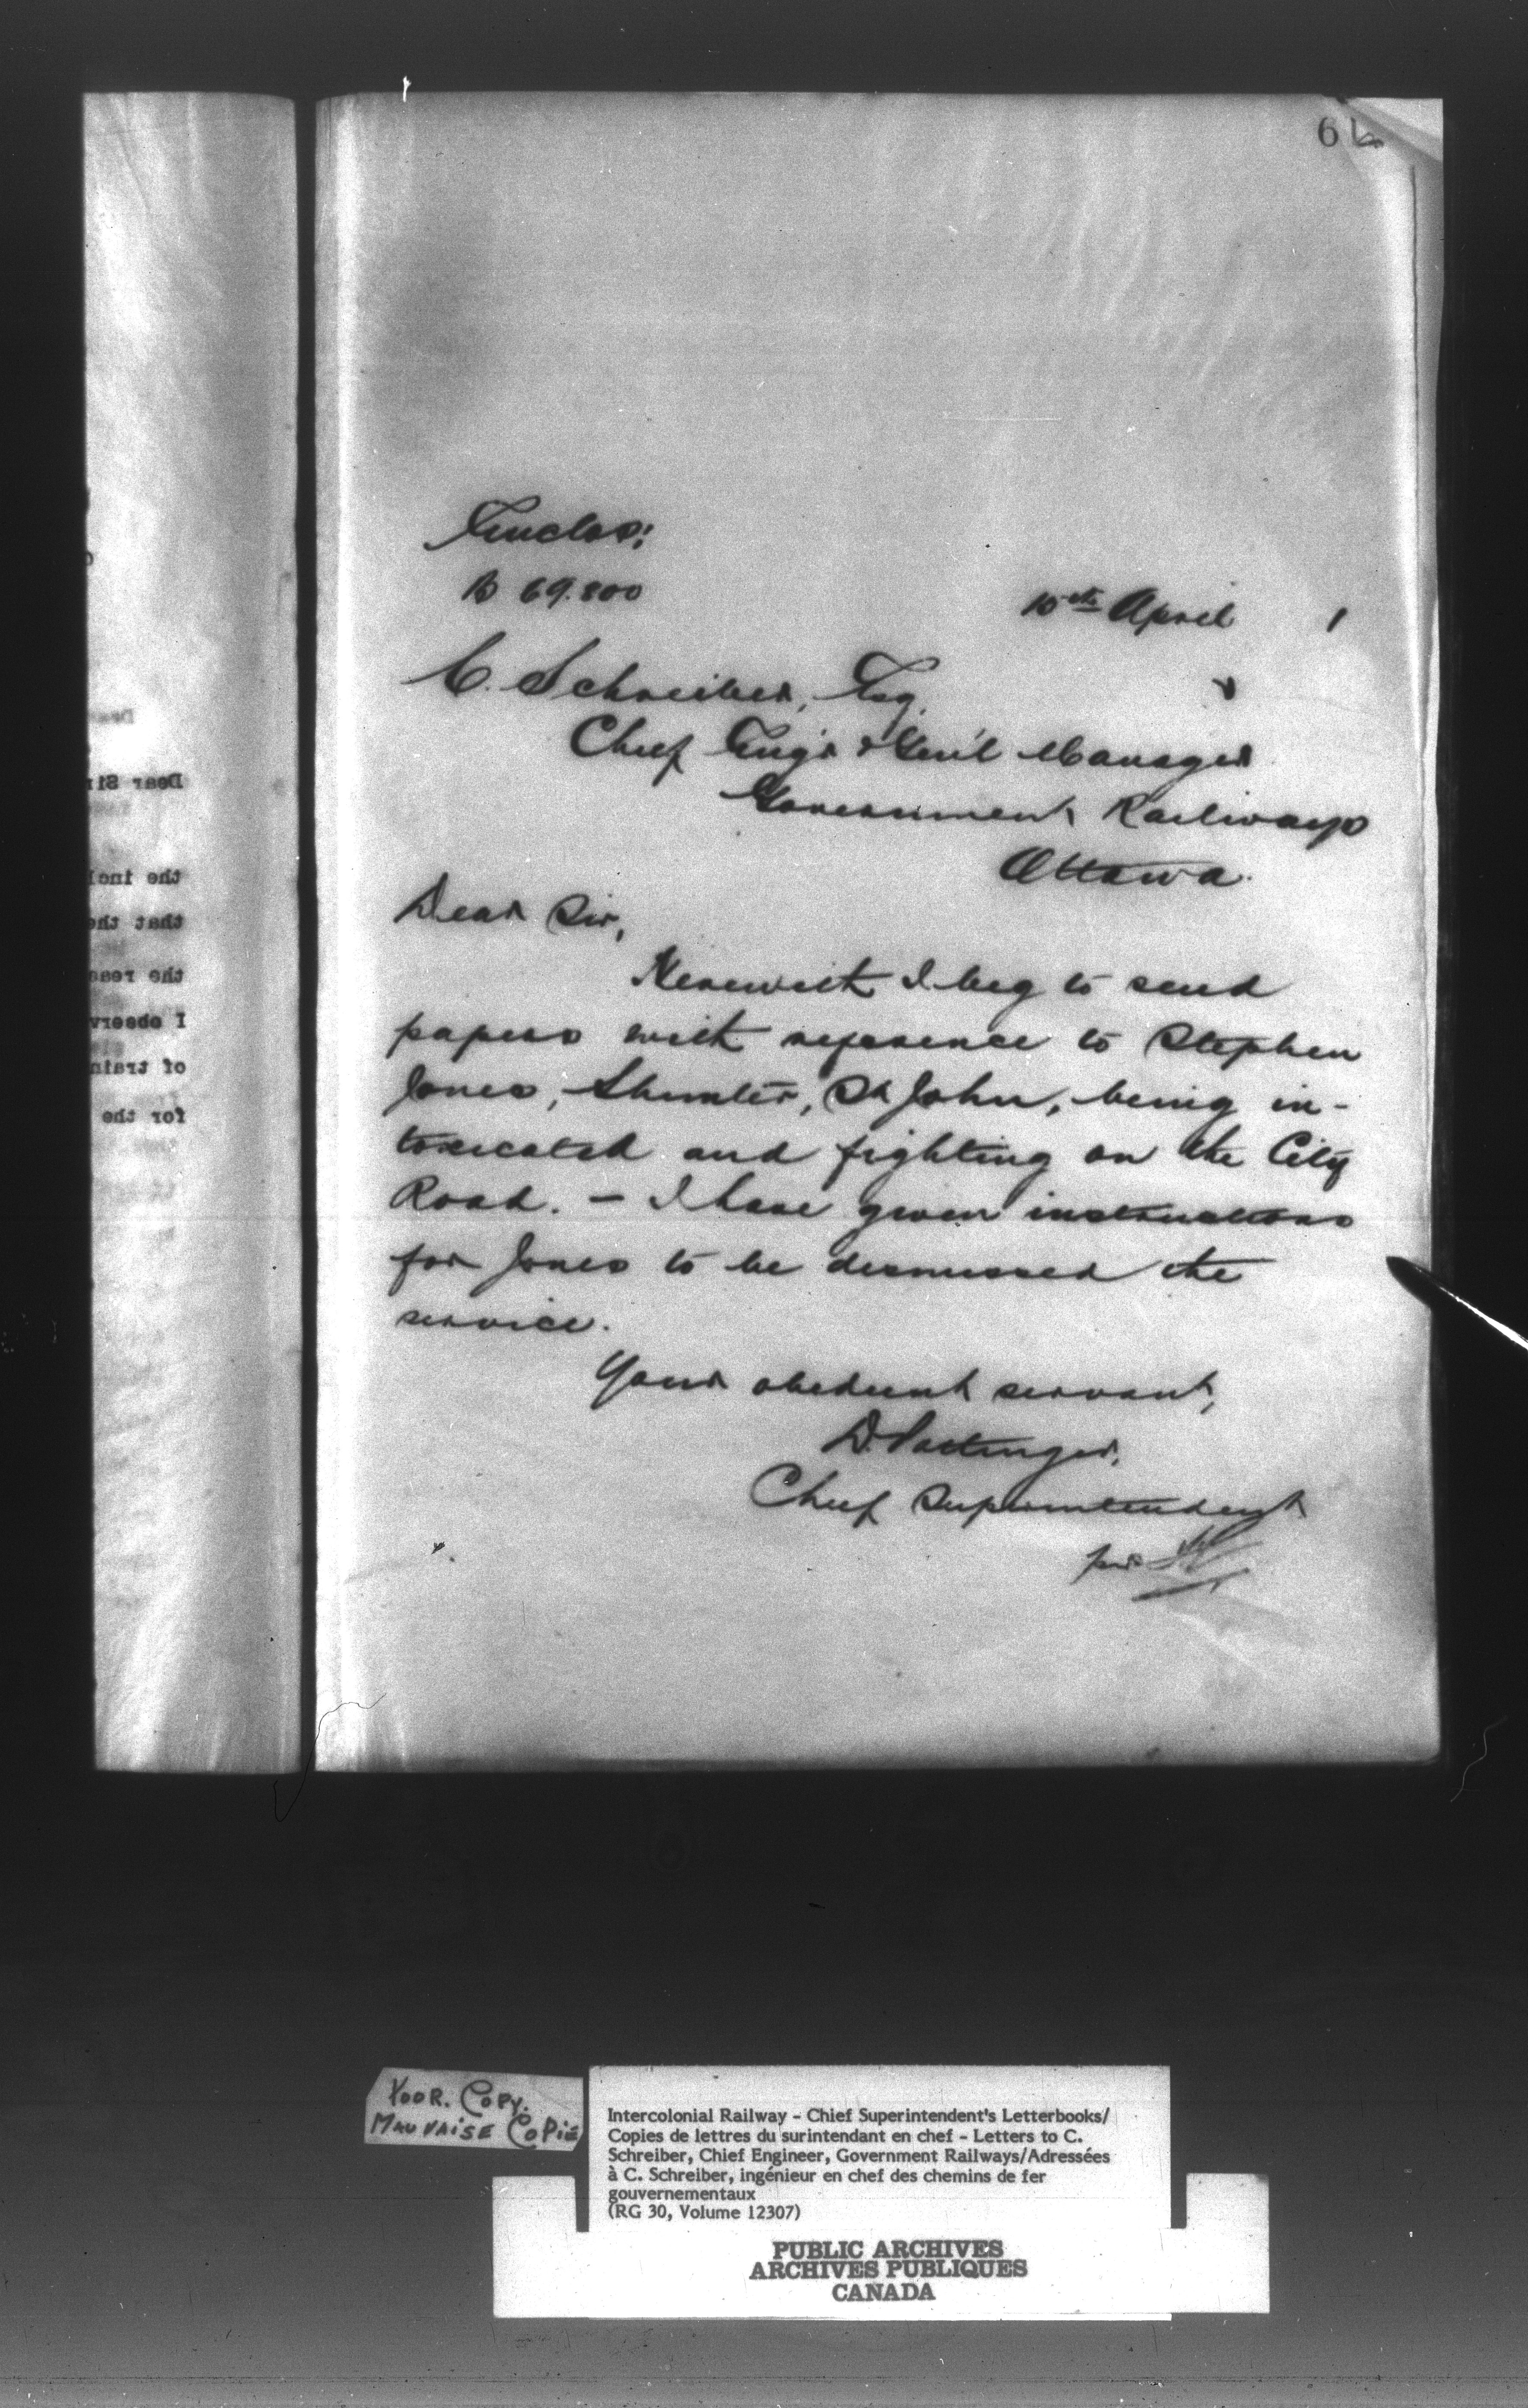 6
Enclos:
B 69.800
10th April 1
C. Schreiber, Esq.
Chief Eng'r & Gen'l Manager
Government Railways
Ottawa.
Dear Sir,
Herewith I beg to send
papers with reference to Stephen
Jones, Shunter, St John, being in-
toxicated and fighting on the City
Road. – I have given instructions
for Jones to be dismissed the
service.
Your obedient servant,
D. Pottinger,
Chief Superintendent
per
Dear Sir
the incl
that the
the reas
I observ
of train
for the
POOR. COPY.
MAUVAISE COPIE
Intercolonial Railway - Chief Superintendent's Letterbooks/
Copies de lettres du surintendant en chef - Letters to C.
Schreiber, Chief Engineer, Government Railways/Adressées
à C. Schreiber, ingénieur en chef des chemins de fer
gouvernementaux
(RG 30, Volume 12307)
PUBLIC ARCHIVES
ARCHIVES PUBLIQUES
CANADA